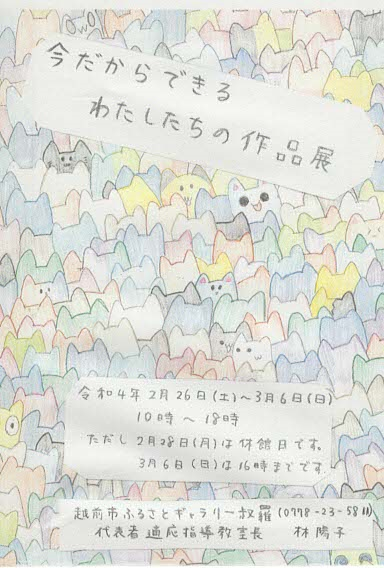 今だからできる
わたしたちの作品展
令和4年2月26日(土)~3月6日(日)
10時~18時
ただし2月28日(月)は休館日です。
3月6日(日)は16時までです。
越前市ふるさとギャラリー叔羅(0778-23-5811)
代表者 適応指導教室長 林 陽子